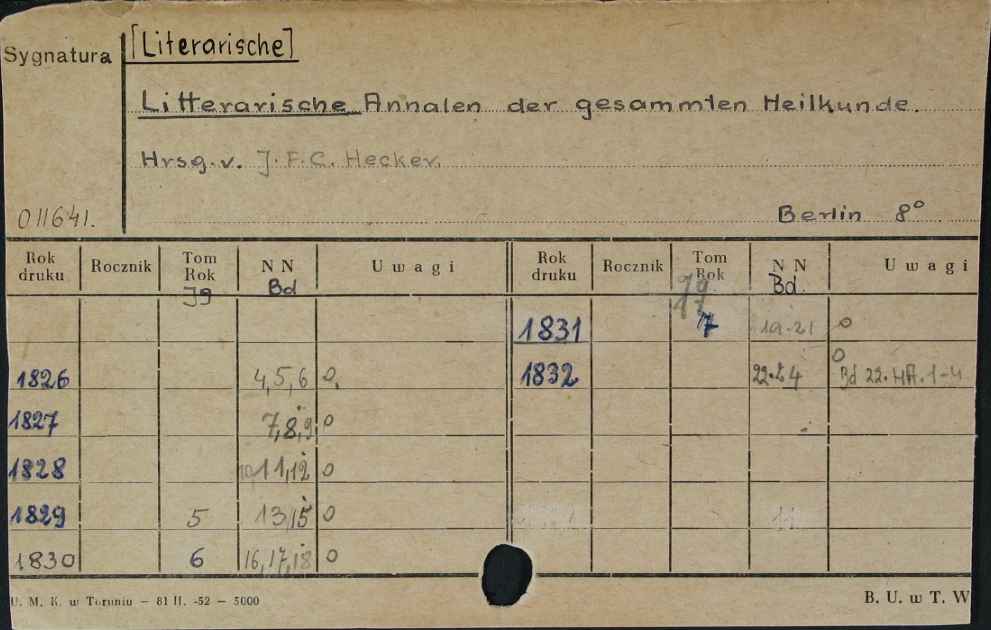 [Literarische]
Sygnatura
Litterarische Annalen der gesammten Heilkunde.
Hrsg. v. J. F. C. Hecker.
011641.
Berlin 8°
Rok druku Rocznik Tom Rok NN Uwagi Rok druku Rocznik Tom Rok NN Uwagi
Jg Bd Jg Bd.
1831 17 19-21 o
1826 4,5,6 o. 1832 22-24 o Bd 22. Hft. 1-4
1827 7,8,9 o
1828 10,11,12 o
1829 5 13,15 o
1830 6 16,17,18 o
U. M. K. w Toruniu – 81 II. -52 – 5000
B. U. w T. W